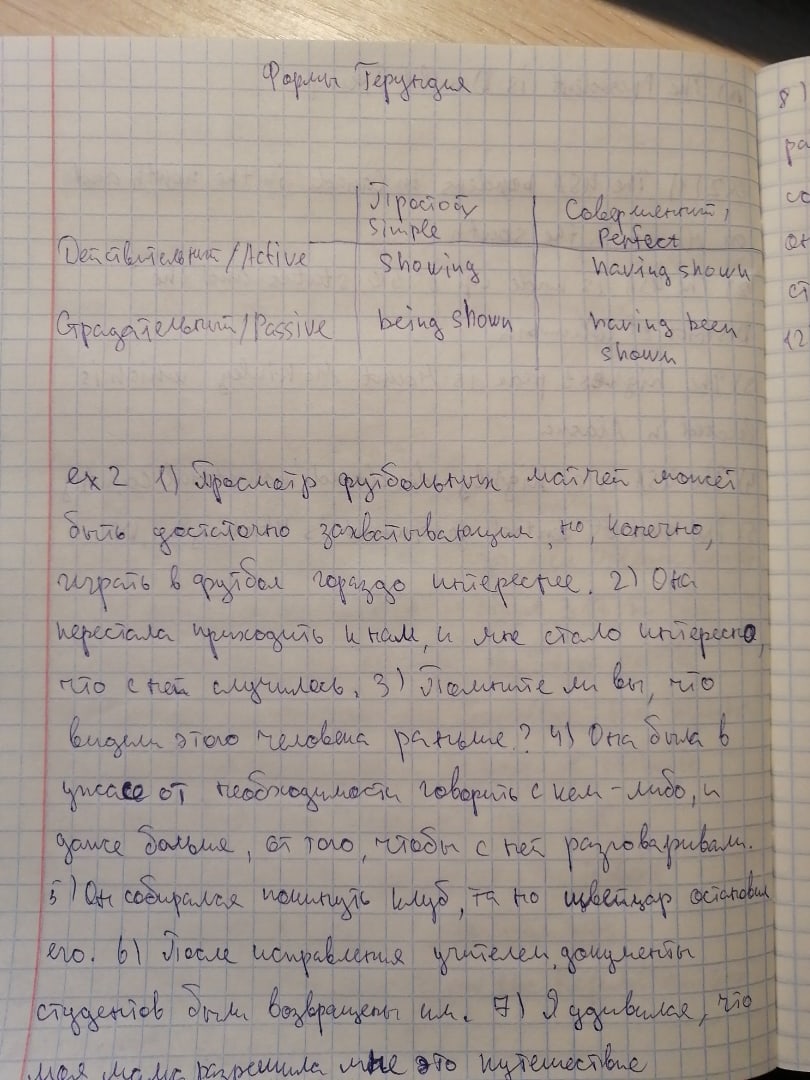 Формы Герундия
Простой, Совершенный,
Simple Perfect
Действительный/Active showing having shown
Страдательный/Passive being shown having been
shown
ex 2 1) Просмотр футбольных матчей может
быть достаточно захватывающим, но, конечно,
играть в футбол гораздо интереснее. 2) Она
перестала приходить к нам, и мне стало интересно,
что с ней случилось. 3) Помните ли вы, что
видели этого человека раньше? 4) Она была в
ужасе от необходимости говорить с кем-либо, и
даже больше, от того, чтобы с ней разговаривали.
5) Он собирался покинуть клуб, но швейцар остановил
его. 6) После исправления учителем документы
студентов были возвращены им. 7) Я удивился, что
моя мама разрешила мне это путешествие
8)
ра
со
он
ст
12